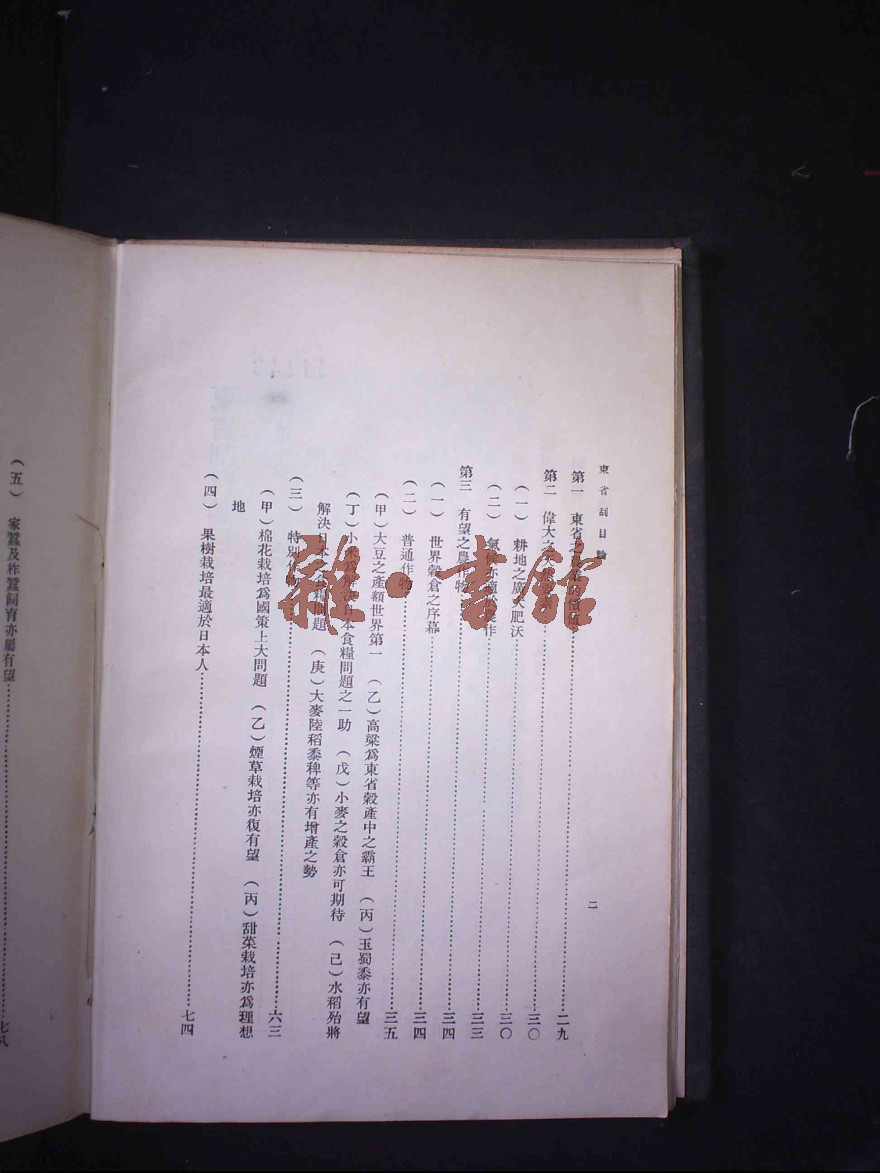 東省刮目論
二
第一 東省之農業的價值……二九
第二 偉大之天然……三〇
（一） 耕地之廣大肥沃……三〇
（二） 氣候亦適於農作……三三
第三 有望之農作物……三四
（一） 世界穀倉之序幕……三四
（二） 普通作物……三五
（甲）大豆之產額世界第一 （乙）高粱爲東省穀產中之霸王 （丙）玉蜀黍亦有望
（丁）小米爲解決日本食糧問題之一助 （戊）小麥之穀倉亦可期待 （己）水稻殆將
解決日本之食糧問題 （庚）大麥陸稻黍稗等亦有增產之勢
（三） 特別作物……六三
（甲）棉花栽培爲國策上大問題 （乙）煙草栽培亦復有望 （丙）甜菜栽培亦爲理想
地
（四） 果樹栽培最適於日本人……七四
（五） 家蠶及柞蠶飼育亦屬有望……七八
雜·書館